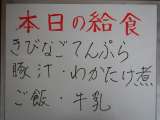 本日の給食
きびなごてんぷら
豚汁・わかたけ煮
ご飯・牛乳